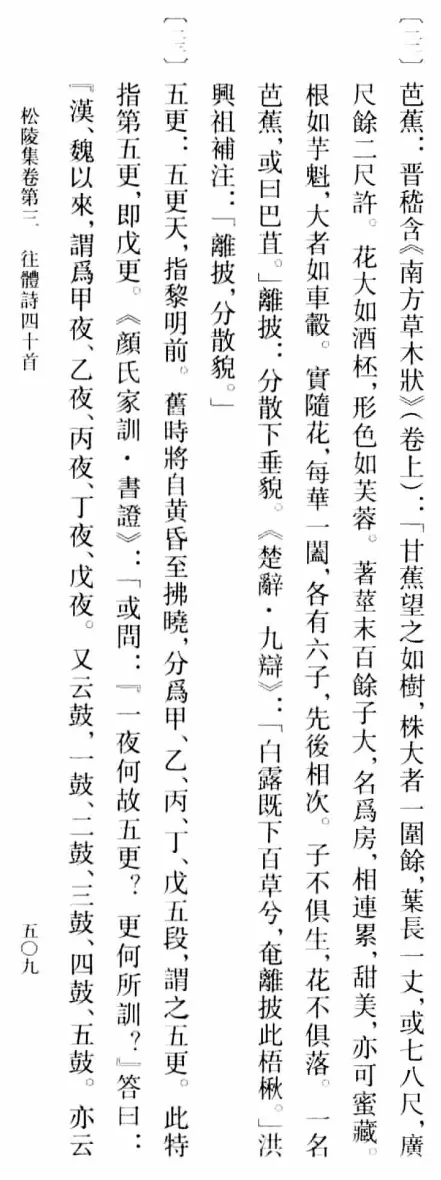 〔二二〕芭蕉：晋嵇含《南方草木狀》（卷上）：「甘蕉望之如樹，株大者一圍餘，葉長一丈，或七八尺，廣
尺餘二尺許。花大如酒杯，形色如芙蓉。著莖末百餘子大，名爲房，相連累，甜美，亦可蜜藏。
根如芋魁，大者如車轂。實隨花，每華一闔，各有六子，先後相次。子不俱生，花不俱落。一名
芭蕉，或曰巴苴。」離披：分散下垂貌。《楚辭·九辯》：「白露既下百草兮，奄離披此梧楸。」洪
興祖補注：「離披，分散貌。」
〔二三〕五更：五更天，指黎明前。舊時將自黄昏至拂曉，分爲甲、乙、丙、丁、戊五段，謂之五更。此特
指第五更，即戊更。《顔氏家訓·書證》：「或問：『一夜何故五更？更何所訓？』答曰：
『漢、魏以來，謂爲甲夜、乙夜、丙夜、丁夜、戊夜。又云鼓，一鼓、二鼓、三鼓、四鼓、五鼓。亦云
松陵集卷第三 往體詩四十首 五〇九